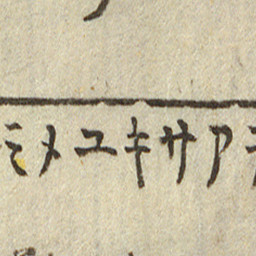 ミメユキサア